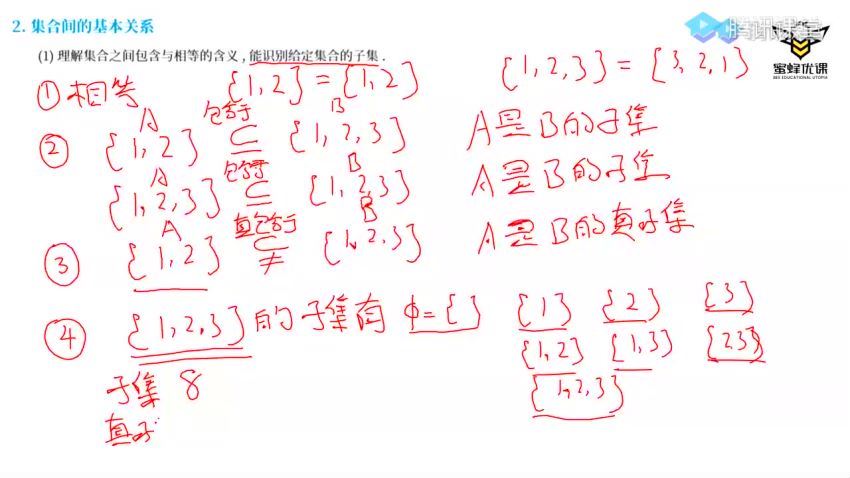 2. 集合间的基本关系
腾讯课堂
(1) 理解集合之间包含与相等的含义，能识别给定集合的子集．
蜜蜂优课
BEE EDUCATIONAL UTOPIA
① 相等 {1,2} = {1,2} {1,2,3} = {3,2,1}
A 包含于 B
② {1,2} ⊆ {1,2,3} A是B的子集
A 包含于 B
{1,2,3} ⊆ {1,2,3} A是B的子集
A 真包含于 B
③ {1,2} ⊊ {1,2,3} A是B的真子集
④ {1,2,3} 的子集有 ϕ={ } {1} {2} {3}
{1,2} {1,3} {23}
{1,2,3}
子集 8
真子